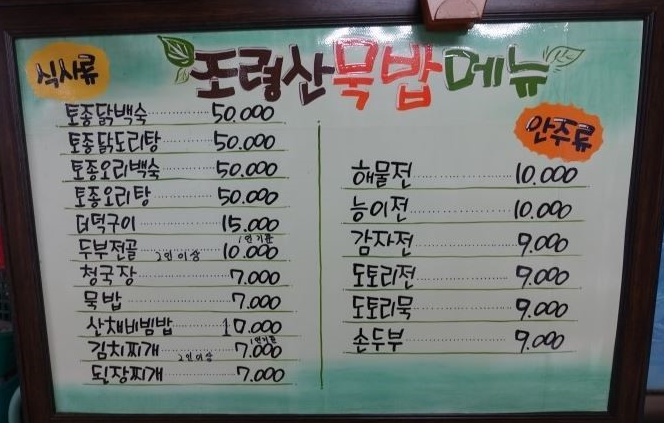 조령산묵밥메뉴
식사류
토종닭백숙 50.000
토종닭도리탕 50.000
토종오리백숙 50.000
토종오리탕 50.000
더덕구이 15.000
두부전골 2인이상 10.000 1인기준
청국장 7.000
묵밥 7.000
산채비빔밥 10.000
김치찌개 2인이상 7.000 1인기준
된장찌개 7.000
안주류
해물전 10.000
능이전 10.000
감자전 9.000
도토리전 9.000
도토리묵 9.000
손두부 9.000